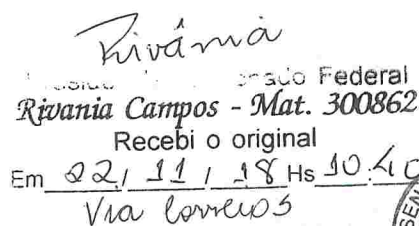 Rivânia
Federal
Rivania Campos - Mat. 300862
Recebi o original
Em 22/11/18 Hs 10:40
Via Correios
SEN